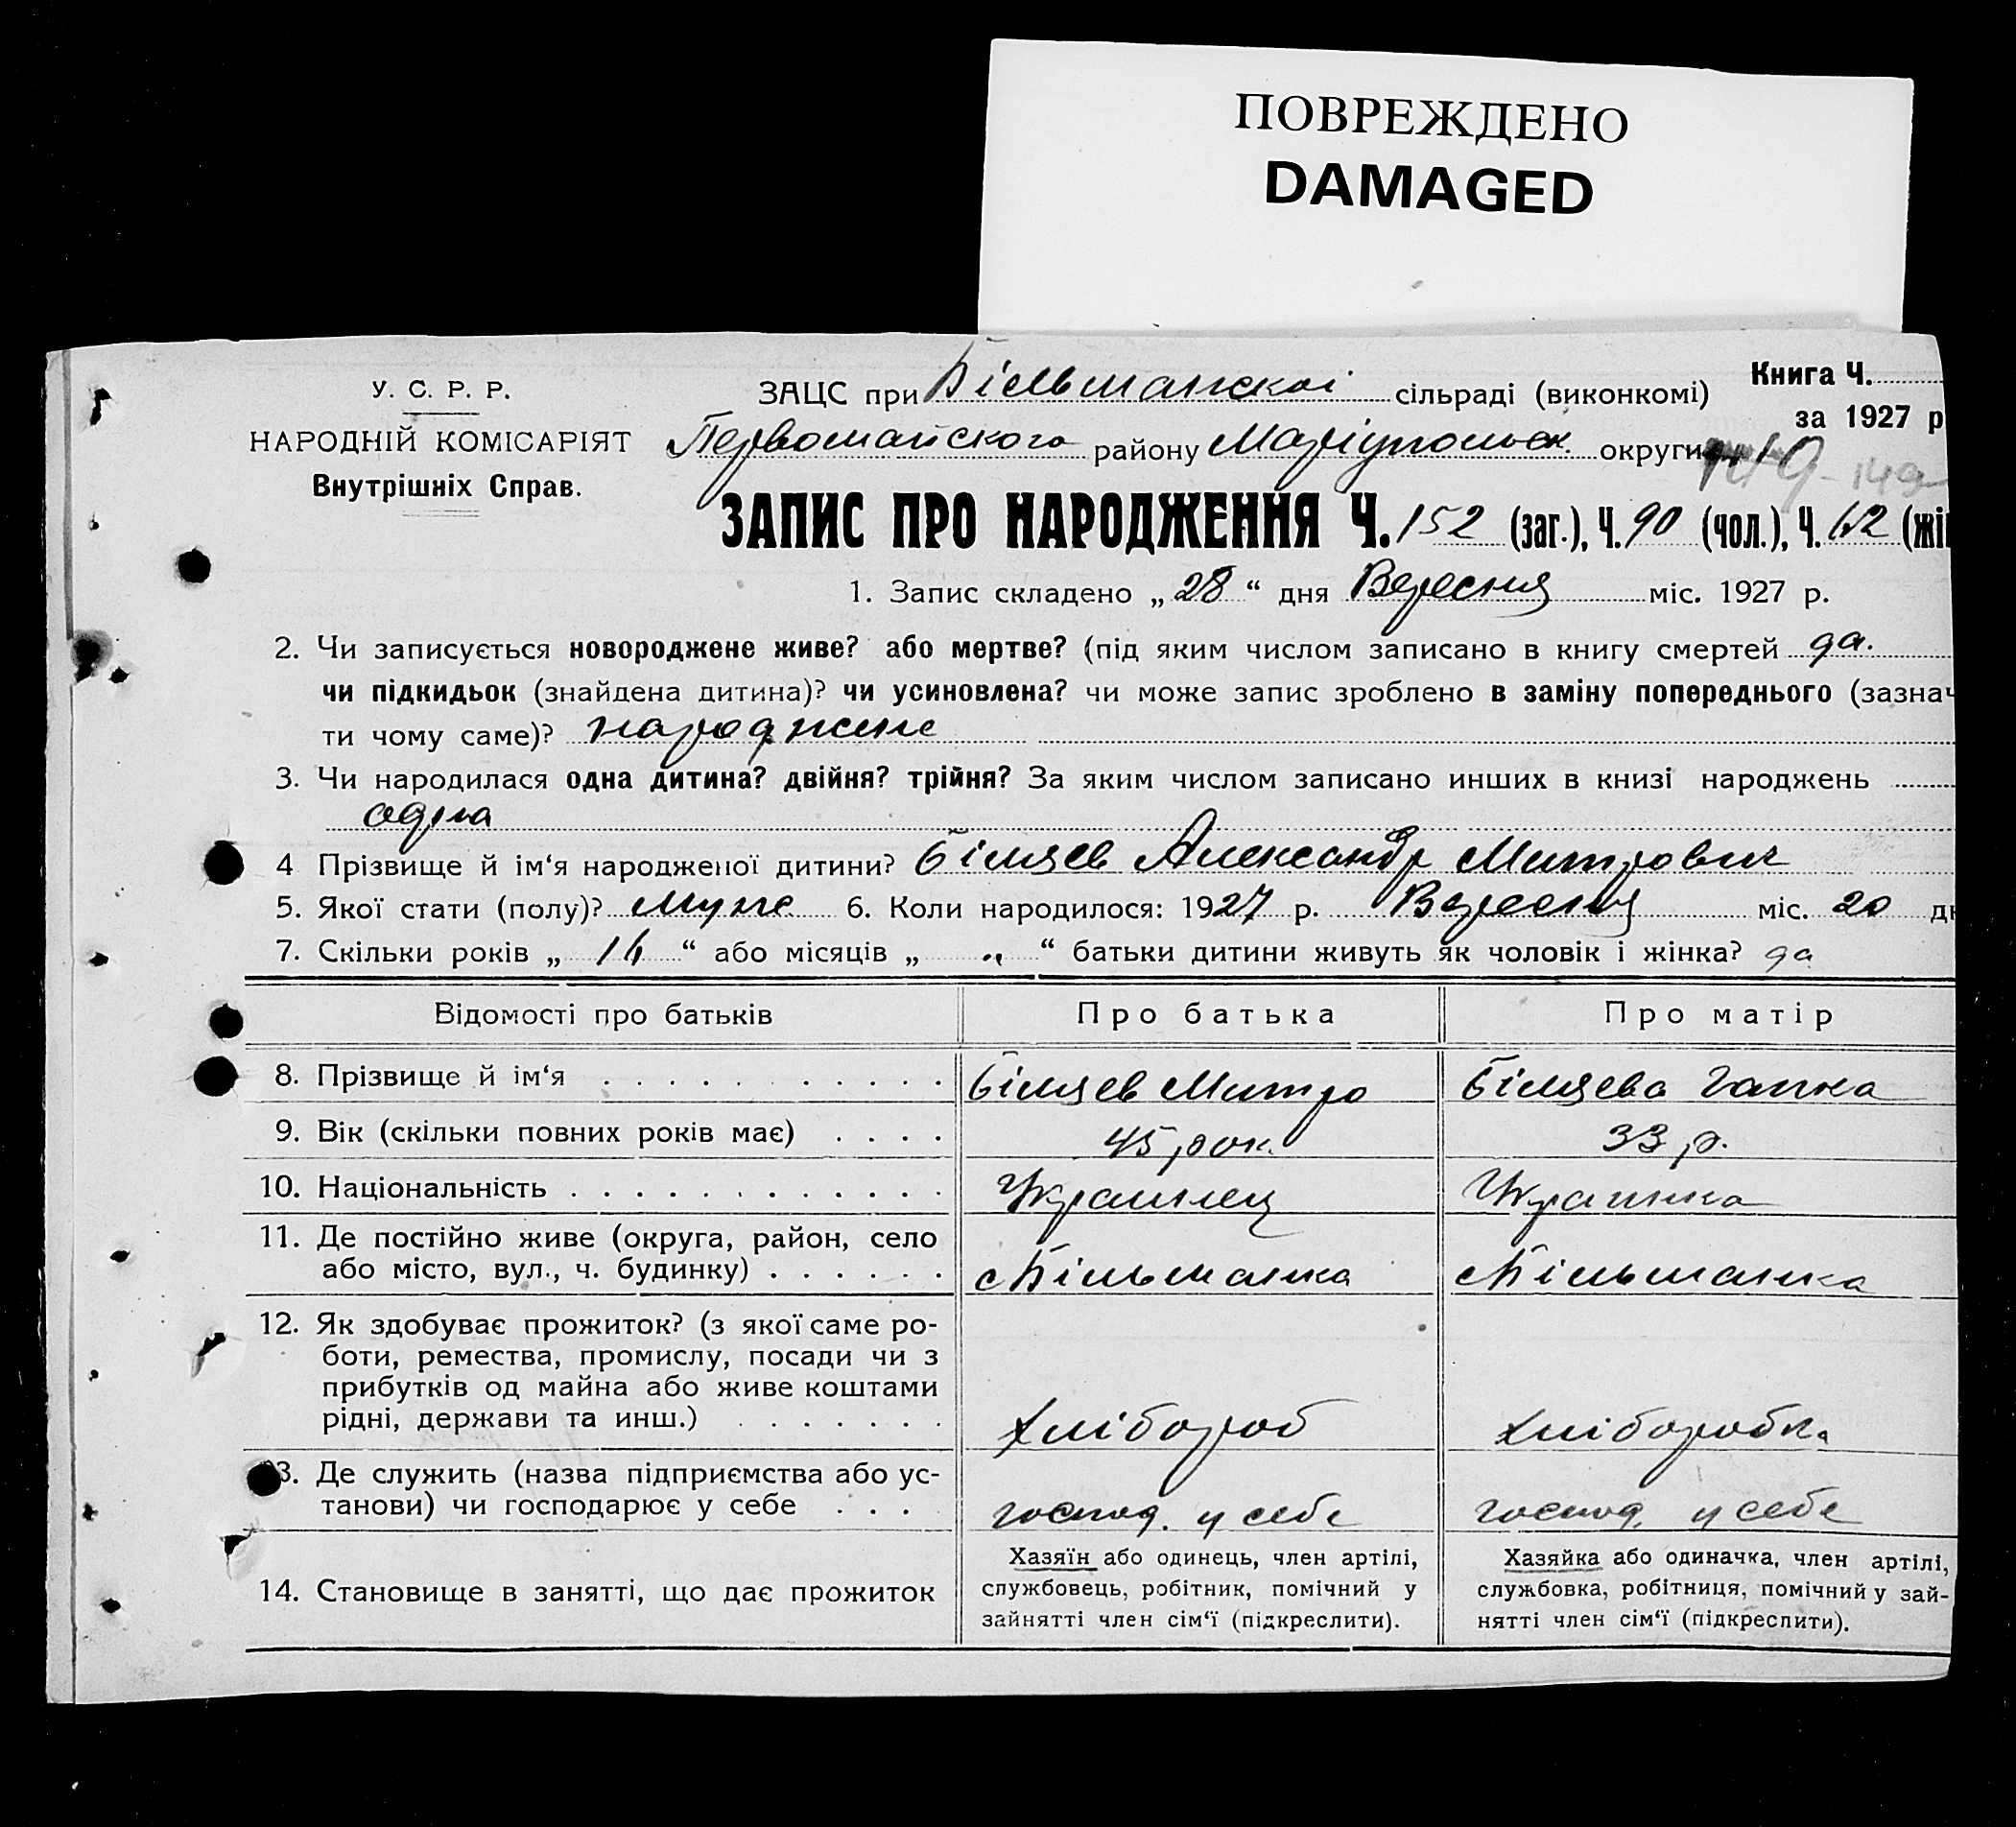 ПОВРЕЖДЕНО
DAMAGED
У. С. Р. Р.
НАРОДНІЙ КОМІСАРІЯТ
Внутрішніх Справ.
ЗАЦС при Більманскоі сільраді (виконкомі)
Книга Ч.
за 1927 р
Первомайского району Маріупольск. округи
149
ЗАПИС ПРО НАРОДЖЕННЯ Ч. 152 (заг.), Ч. 90 (чол.), Ч. 62 (жі
1. Запис складено „ 28 “ дня Вересня міс. 1927 р.
2. Чи записується новороджене живе? або мертве? (під яким числом записано в книгу смертей да.
чи підкидьок (знайдена дитина)? чи усиновлена? чи може запис зроблено в заміну попереднього (зазнач
ти чому саме)? народжене
3. Чи народилася одна дитина? двійня? трійня? За яким числом записано инших в книзі народжень
одна
4 Прізвище й ім‘я народженої дитини? Біляев Александр Митрович
5. Якої стати (полу)? Муже 6. Коли народилося: 1927 р. Вересня міс. 20 дн
7. Скільки років „ 14 “ або місяців „ „ “ батьки дитини живуть як чоловік і жінка? да
Відомості про батьків Про батька Про матір
8. Прізвище й ім‘я Біляев Митро Біляева Гапка
9. Вік (скільки повних років має) 45 рок. 33 р.
10. Національність Украинец Украинка
11. Де постійно живе (округа, район, село
або місто, вул., ч. будинку) с Більманка с Більманка
12. Як здобуває прожиток? (з якої саме ро-
боти, ремества, промислу, посади чи з
прибутків од майна або живе коштами
рідні, держави та инш.) Хлібороб Хліборобка
3. Де служить (назва підприємства або ус-
танови) чи господарює у себе господ. у себе господ. у себе
14. Становище в занятті, що дає прожиток
Хазяїн або одинець, член артілі,
службовець, робітник, помічний у
зайнятті член сім‘ї (підкреслити).
Хазяйка або одиначка, член артілі,
службовка, робітниця, помічний у зай-
нятті член сім‘ї (підкреслити).